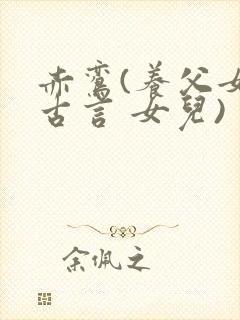 赤鸾(養父女
古言 女兒)
余佩之